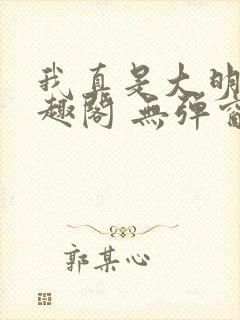 我真是大明
趣阁 無弹窗
郭某心